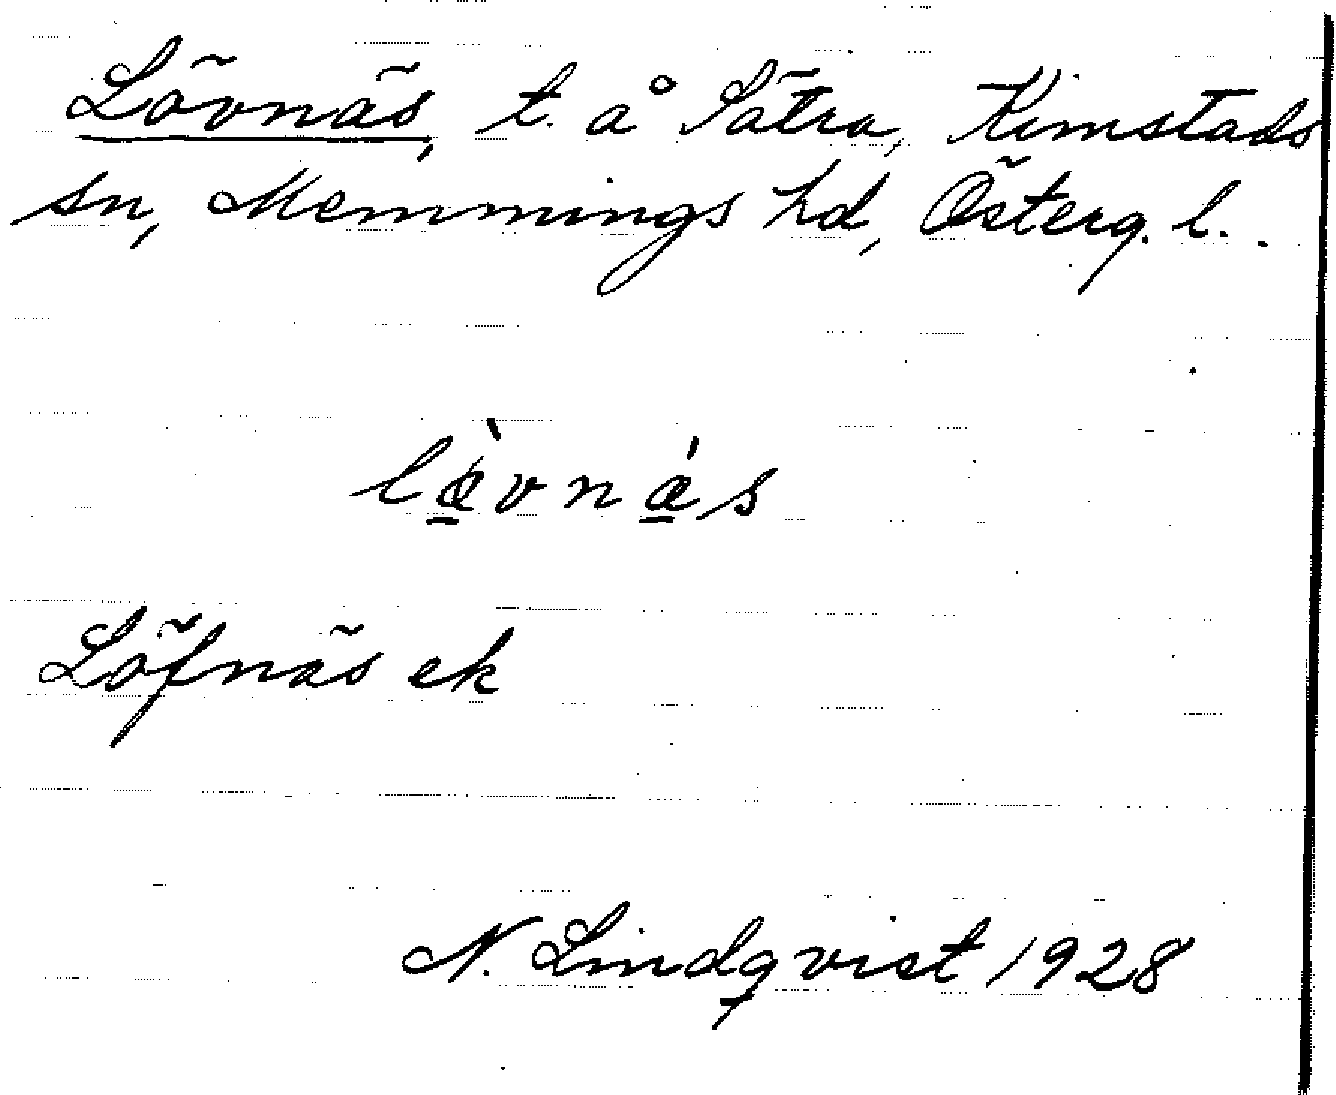 Lövnäs, t. å Sätra, Kimstads
sn, Memmings hd, Österg. l..
læ̱̀vnǽ̱s
Löfnäs ek
N. Lindqvist 1928